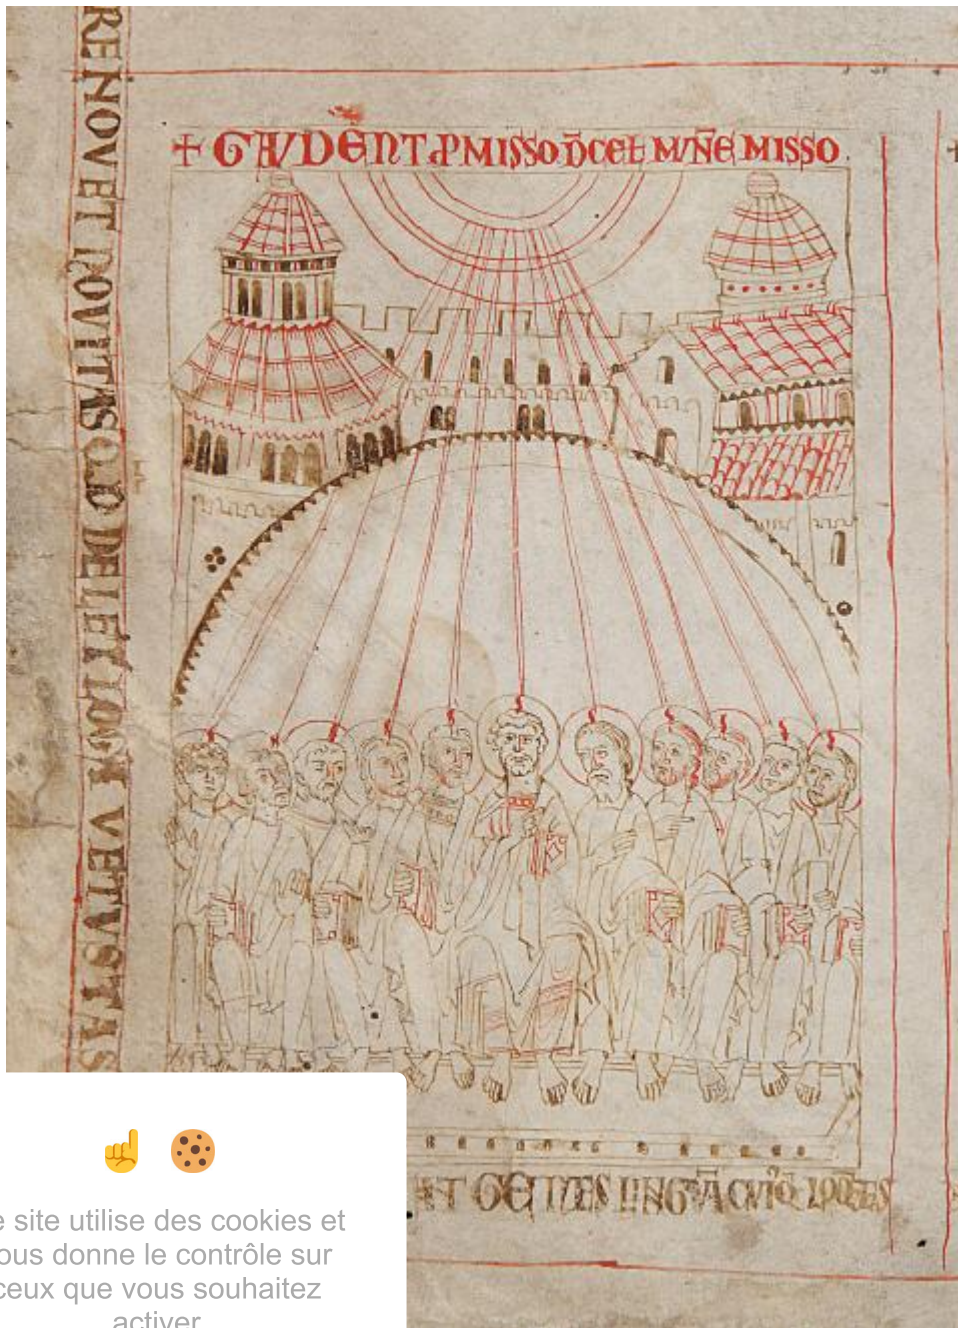 RENOVET NOVITAS VETVSTAS
+ GAVDENT PMISSO DCET MVNE MISSO
GENTES LINGVA CVIQ
e site utilise des cookies et
ous donne le contrôle sur
ceux que vous souhaitez
activer